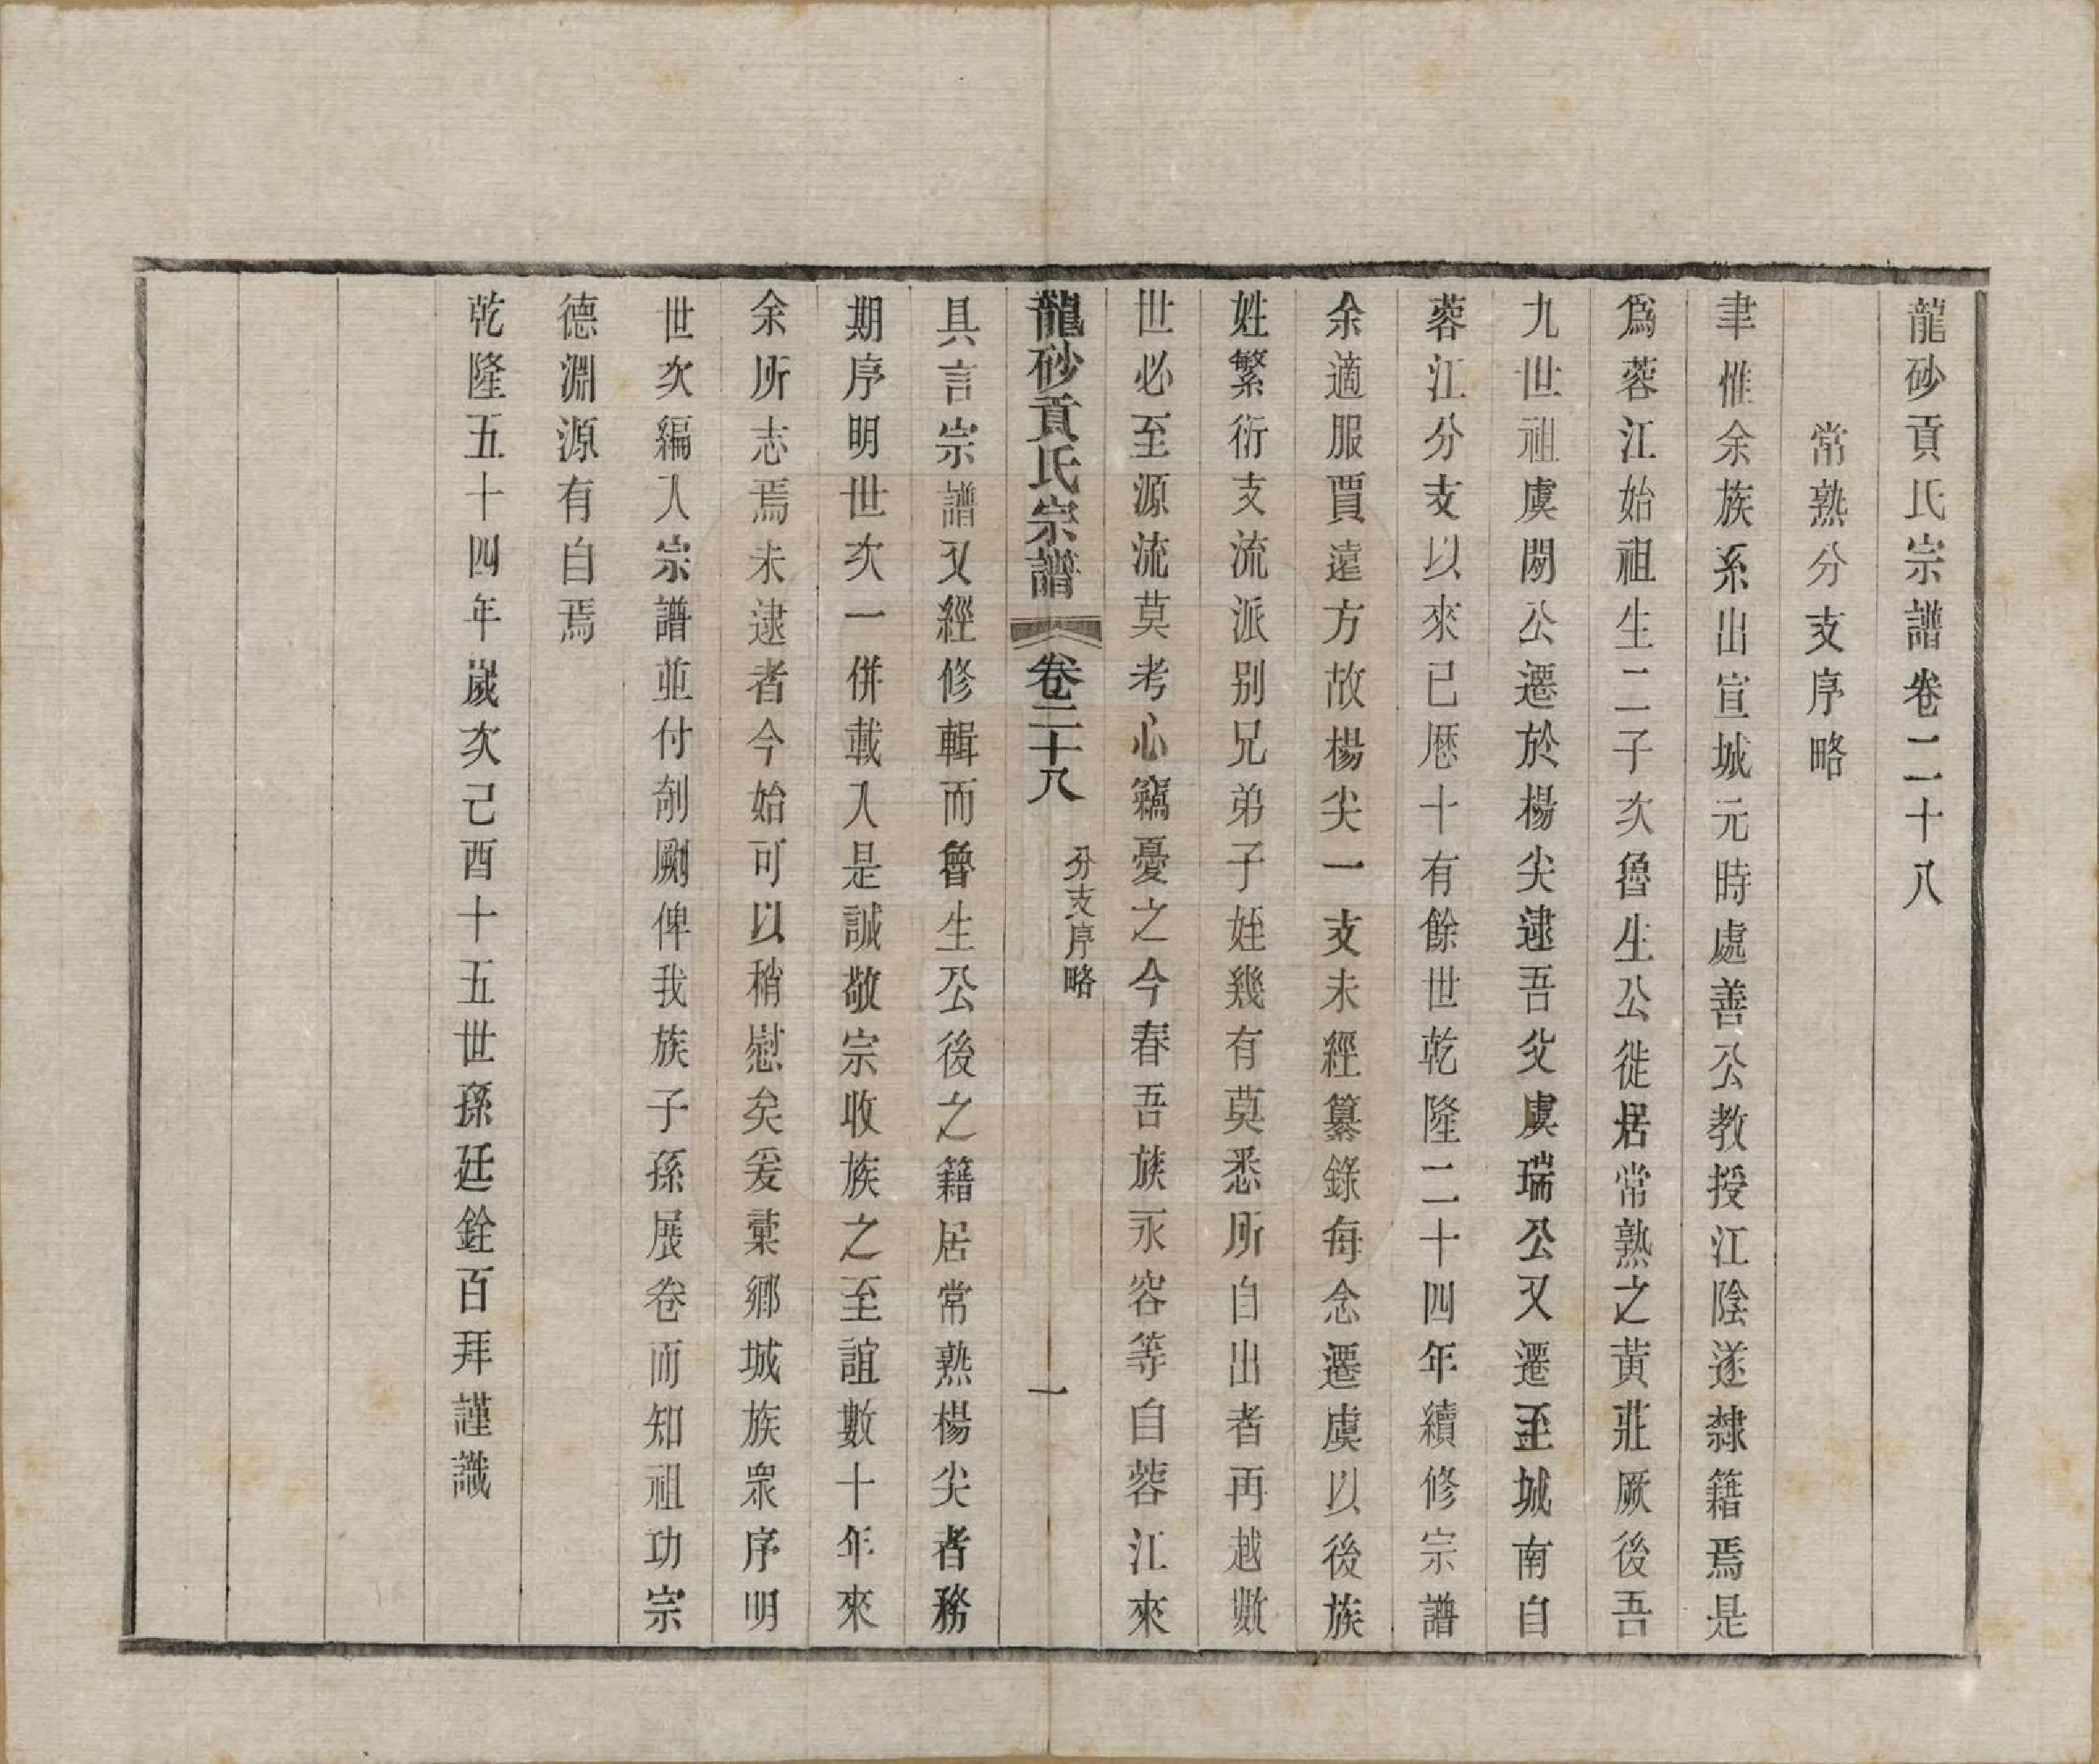 龍砂貢氏宗譜卷二十八
常熟分支序略
聿惟余族系出宣城元時處善公教授江陰遂隸籍焉是
爲蓉江始祖生二子次魯生公徙居常熟之黃莊厥後吾
九世祖虞閣公遷於楊尖逮吾父虞瑞公又遷至城南自
蓉江分支以來已歷十有餘世乾隆二十四年續修宗譜
余適服賈遠方故楊尖一支未經纂錄每念遷虞以後族
姓繁衍支流派别兄弟子姪幾有莫悉所自出者再越數
世必至源流莫考心竊憂之今春吾族永容等自蓉江來
龍砂貢氏宗譜 卷二十八 分支序略 一
具言宗譜又經修輯而魯生公後之籍居常熟楊尖者務
期序明世次一併載入是誠敬宗收族之至誼數十年來
余所志焉未逮者今始可以稍慰矣爰彙鄉城族衆序明
世次編入宗譜並付剞劂俾我族子孫展卷而知祖功宗
德淵源有自焉
乾隆五十四年歲次己酉十五世孫廷銓百拜謹識